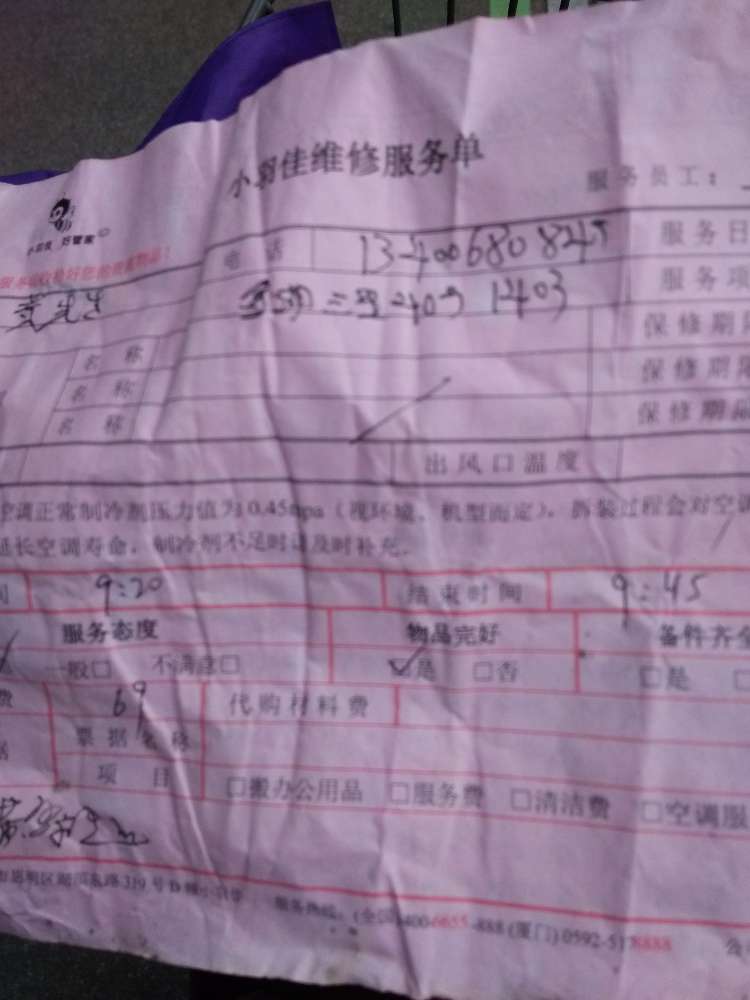 小羽佳维修服务单
服务员工：
小羽佳 好管家
电话 13400680845 服务日
服务项
三 1403
保修期
名称
保修期
名称
保修期
名称
出风口温度
空调正常制冷剂压力值为0.45mpa（视环境、机型而定），拆装过程会对空
延长空调寿命，制冷剂不足时请及时补充。
9:20 结束时间 9:45
服务态度 物品完好 备件齐全
一般□ 不满意□ ☑是 □否 □是
费 69 代购材料费
票据名称
项目 □搬办公用品 □服务费 □清洁费 □空调服
服务热线：(全国)400-6655-888 (厦门) 0592-5178888